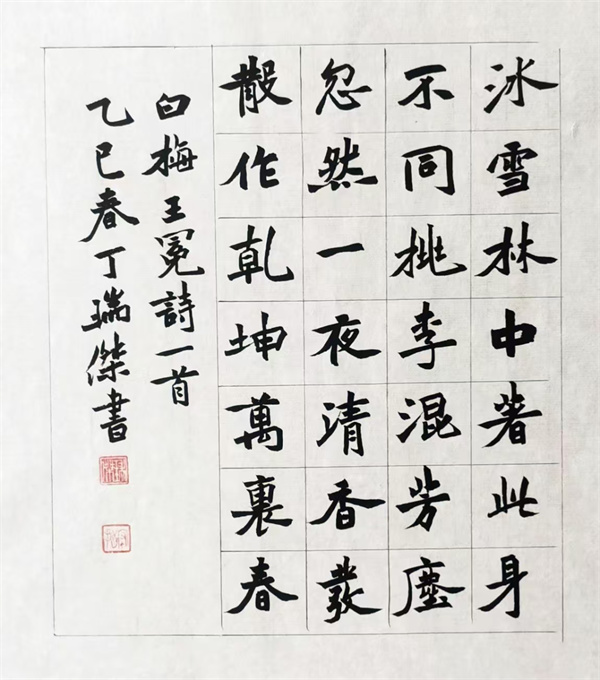 冰雪林中著此身
不同桃李混芳塵
忽然一夜清香發
散作乾坤萬裏春
白梅王冕詩一首
乙巳春丁瑞傑書